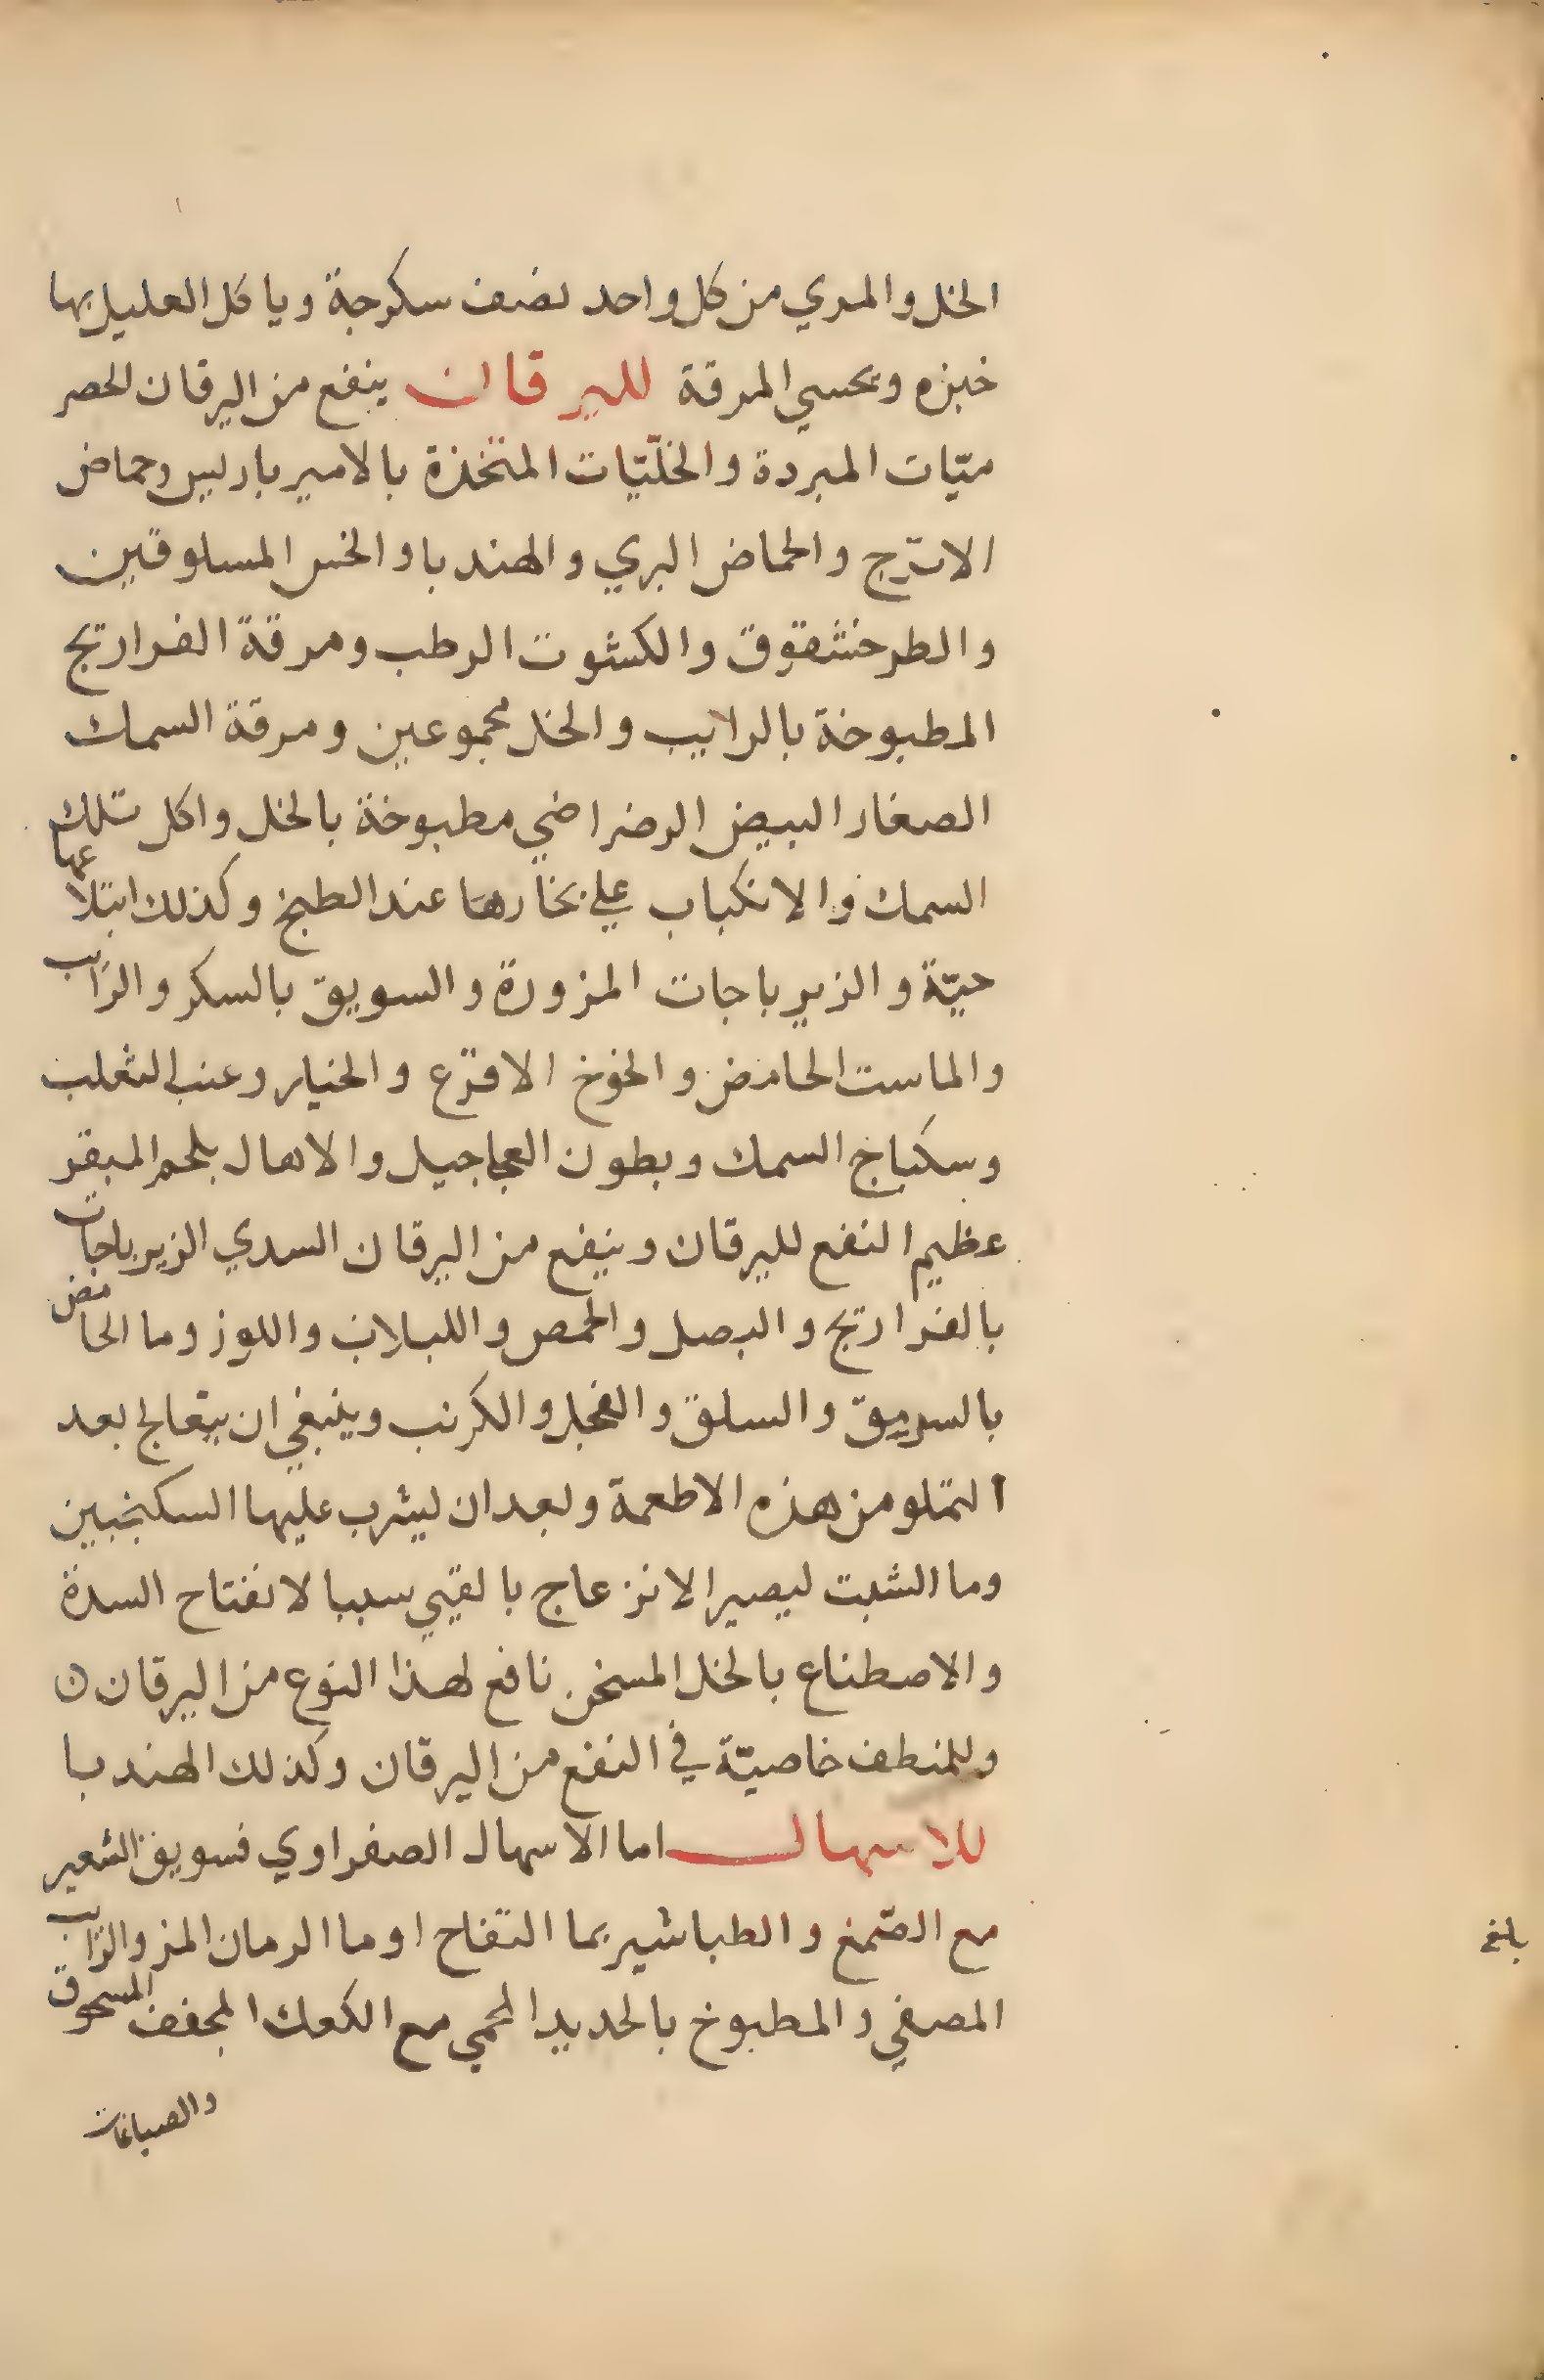 الخل والمري من كل واحد نصف سكرجة وياكل العليل بها
خبزه ويحسي المرقة لليرقان ينفع من اليرقان الحصر
ميّات المبردة والخلّيّات المتخذة بالامير باريس وحماض
الاترج والحماض البري والهندبا والخس المسلوقين
والطرخشقوق والكشوت الرطب ومرقة الفراريج
المطبوخة بالرايب والخل مجموعين ومرقة السمك
الصغار البيض الرضراضي مطبوخة بالخل واكل تلك
السمك والانكباب علي بخارها عند الطبخ وكذلك ابتلاعها
حيّة والزيرباجات المزورة والسويق بالسكر والرايب
والماست الحامض والخوخ الاقرع والخيار وعنب الثعلب
وسكباخ السمك وبطون العجاجيل والاهال بلحم المبقر
عظيم النفع لليرقان وينفع من اليرقان السدي الزيرباجات
بالفراريج والبصل والحمص واللبلاب واللوز وما الحامض
بالسرمق والسلق والفجل والكرنب وينبغي ان يتعالج بعد
التملو من هذه الاطعمة وبعد ان يشرب عليها السكنجبين
وما الشبت ليصير الانزعاج بالقيي سببا لانفتاح السدة
والاصطناع بالخل المسخن نافع لهذا النوع من اليرقان ن
وللمنطف خاصيّة في النفع من اليرقان وكذلك الهندبا
للاسهال اما الاسهال الصفراوي فسويق الشعير
مع الصّمغ والطباشير بما التفاح او ما الرمان المز والرايب
المصفي والمطبوخ بالحديد المحمي مع الكعك المجفف المسحوق
والصباغات
بلغ